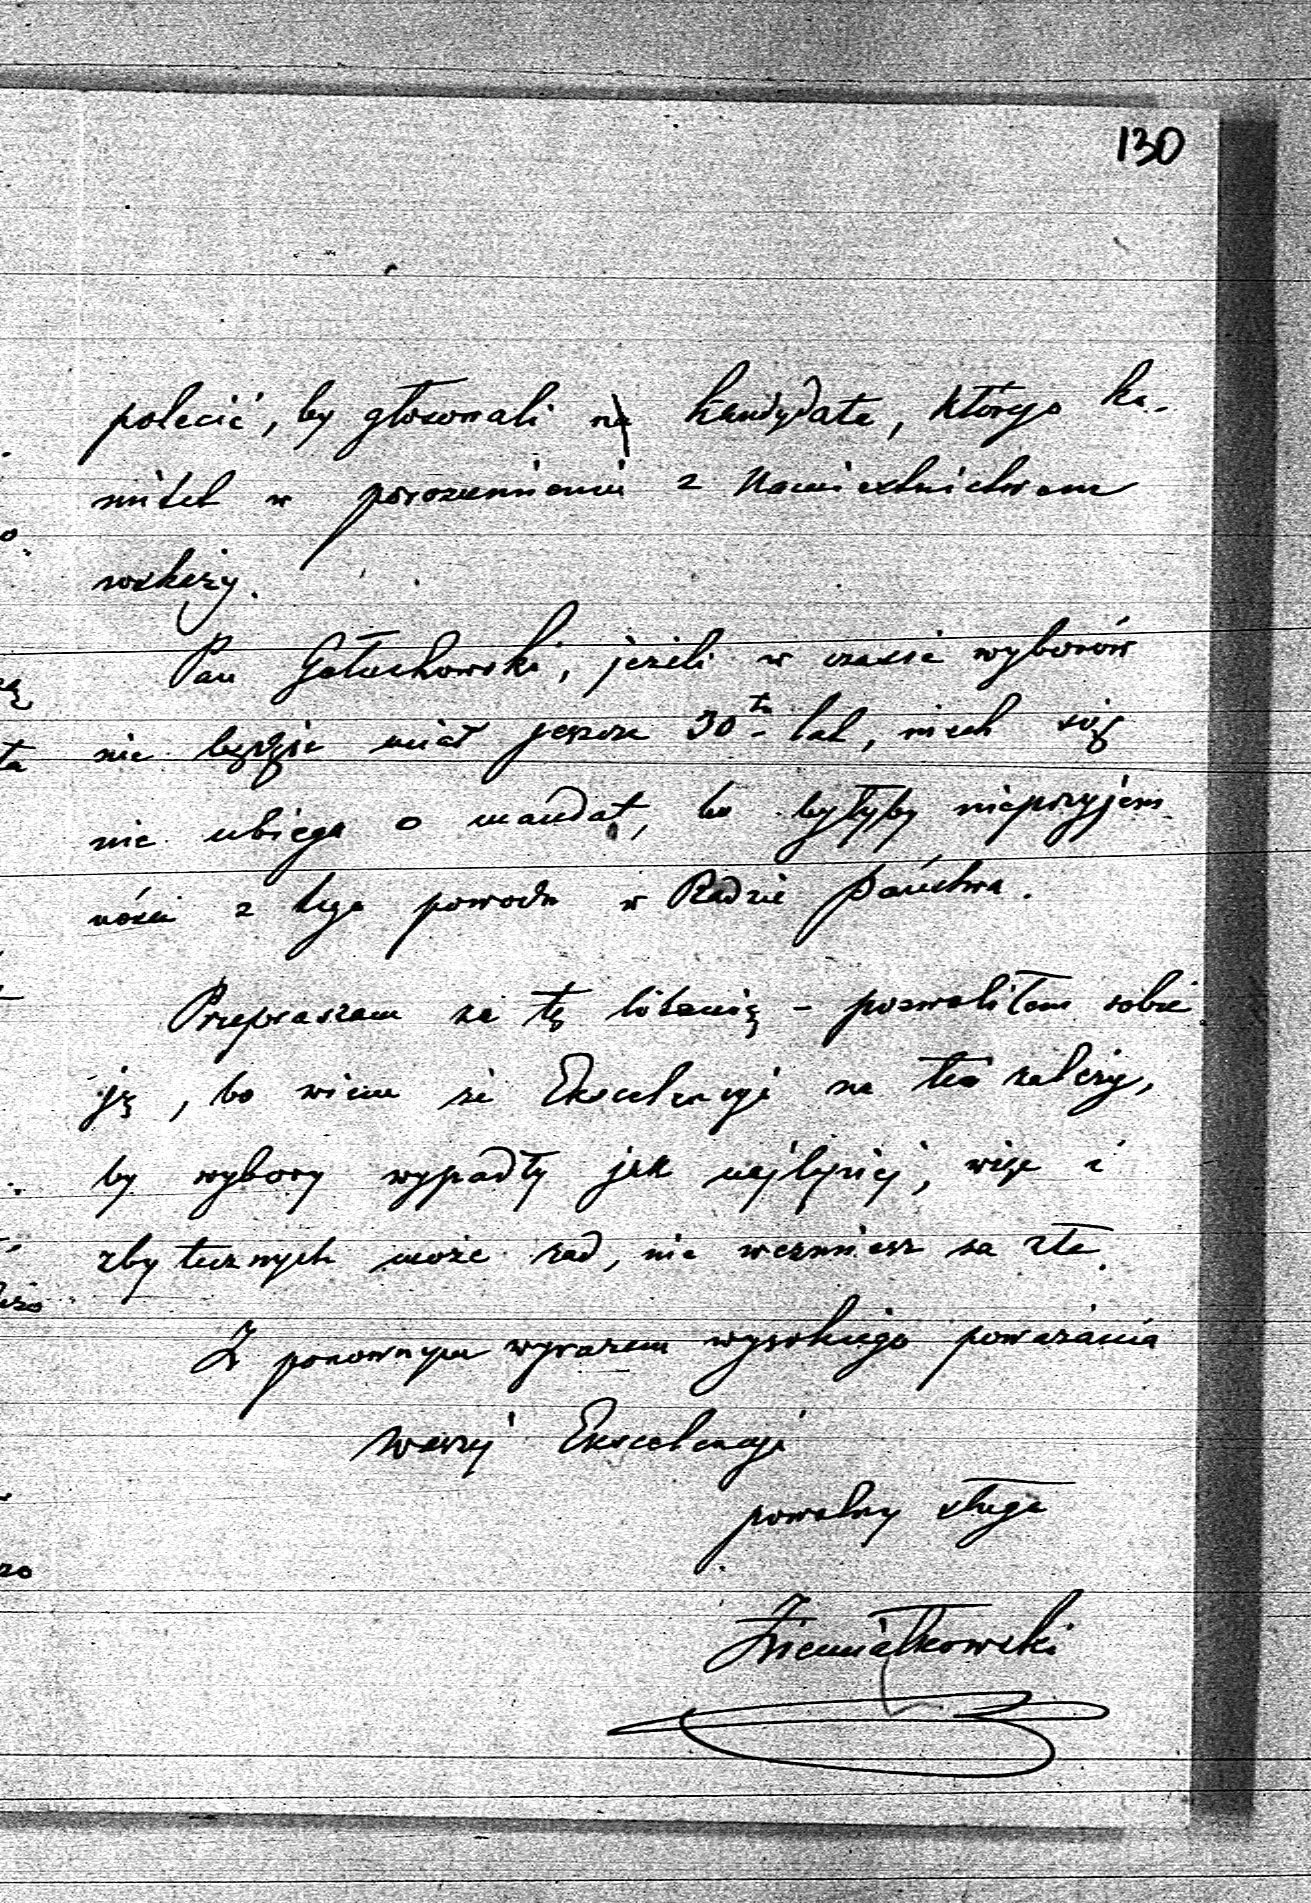 130
polecić, by głosowali na kandydata, którego ko-
mitet w porozumieniu z Namiestnictwem
wskaży.
Pan Gołuchowski, jeżeli w czasie wyborów
nie będzie miał jeszcze 30tu lat, niech się
nie ubiega o mandat, bo byłyby nieprzyjem
ności z tego powodu w Radzie państwa.
Przepraszam za tę litanię – pozwoliłem sobie
ją, bo wiem że Ekscelencyi na tem zależy,
by wybory wypadły jak najlepiej, więc i
zbytecznych może rad, nie weźmiesz za złe.
Z ponownym wyrazem wysokiego poważania
Waszej Ekscelencyi
powolny sługa
Ziemiałkowski